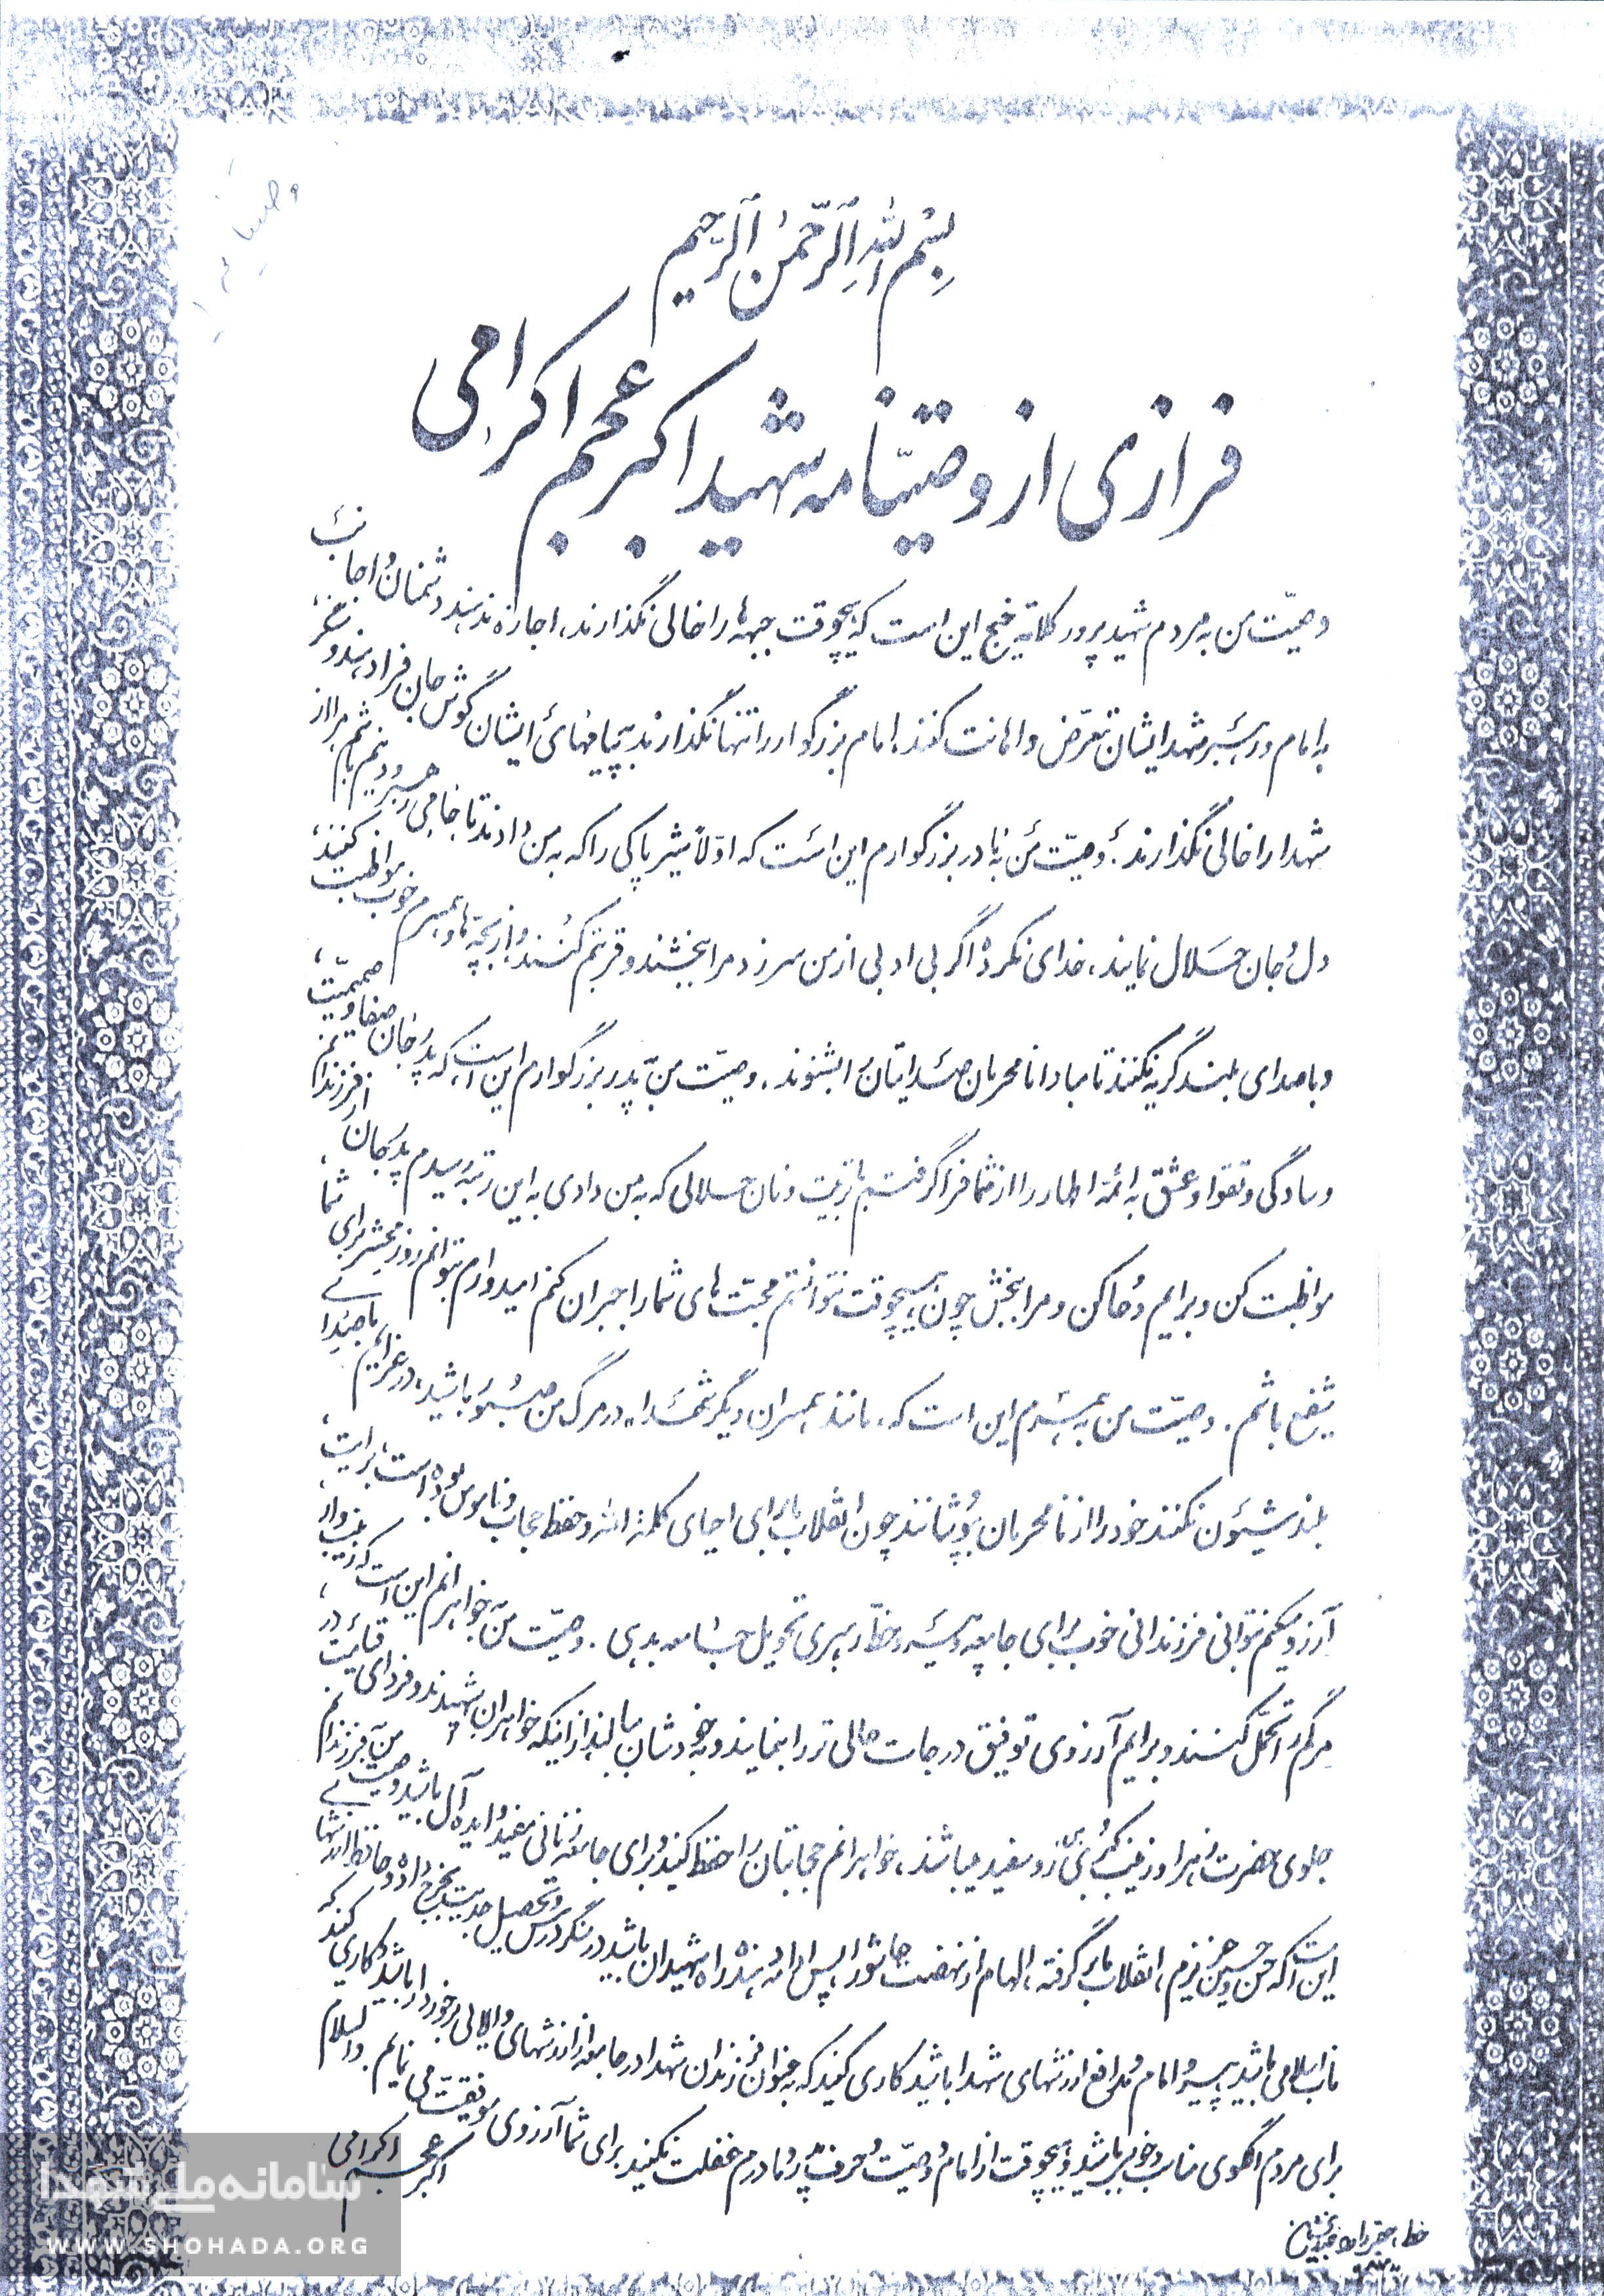 وصیتنامه
بسم الله الرحمن الرحیم
فرازی از وصیتنامه شهید اکبر عجم اکرامی
وصیّت من به مردم شهید پرور کلاته خیج این است که هیچوقت جبهه ها را خالی نگذارند، اجازه ندهند دشمنان و اجانب
به امام و رهبر شهدایشان تعرّض و اهانت کنند. امام بزرگوار را تنها نگذارند به پیامهای ایشان گوش جان فرا دهند و سنگر
شهدا را خالی نگذارند. وصیّت من به مادر بزرگوارم این است که اولاً شیر پاکی را که به من دادند تا خامی رهبرو دینم باشم مرا از
دل و جان حلال نمایند، خدای نکرده اگر بی ادبی از من سر زد مرا ببخشند و قربتم کنند و از بچّه ها و همسرم خوب مواظبت کنند،
و با صدای بلند گریه نکنند تا مبادا نامحرمان صدایتان را بشنوند. وصیّت من به پدر بزرگوارم این است که پدر جان صفا و صمیمیّت،
و سادگی و تقوا و عشق به ائمه اطهار را از شما فرا گرفتم با تربیت و نان حلالی که به من دادی به این رتبه رسیدم پدر جان از فرزندانم
مواظبت کن و برایم دعا کن و مرا ببخش چون هیچوقت نتوانستم محبت های شما را جبران کنم امیدوارم بتوانم روز محشر برای شما
شفیع باشم. وصیّت من به همسرم این است که، مانند همسران دیگر شهدا، در مرگ من صبور باشید، در عزایم با صدای
بلند شیون نکنند خود را از نامحرمان بپوشانند چون انقلاب ما برای احیای کلمة الله و حفظ حجاب و ناموس بوده است، برایت،
آرزو میکنم بتوانی فرزندانی خوب برای جامعه و خط رهبری تحویل جامعه بدهی. وصیّت من به خواهرانم این است که زینب وار،
مرگم را تحمّل کنند و برایم آرزوی توفیق درجات عالی تر را بنمایند و به خودشان ببالند از اینکه خواهران شهیدند و فردای قیامت در،
جلوی حضرت زهرا و زینب کبری رو سفید میباشند، خواهرانم حجابتان را حفظ کنید و برای جامعه زنانی مفید و ایده آل باشید وصیّت من به فرزندانم
این است که حسن و حسین عزیزم، انقلاب ما بر گرفته، الهام از نهضت عاشورا پس ادامه دهنده راه شهیدان باشید در سنگر درس و تحصیل جدیت بخرج داده و حافظ ارزشهای
ناب اسلامی باشید پیرو امام و مدافع ارزشهای شهدا باشید کاری کنید که به عنوان فرزندان شهدا در جامعه از ارزشهای والایی برخوردار باشید کاری کنید که
برای مردم الگوی مناسب و خوبی باشید و هیچوقت از امام و وصیّت و حرف پدر و مادرم غفلت نکنید برای شما آرزوی موفقیت می نمایم. والسلام
اکبر عجم اکرامی
سامانه ملی شهدا
WWW.SHOHADA.ORG